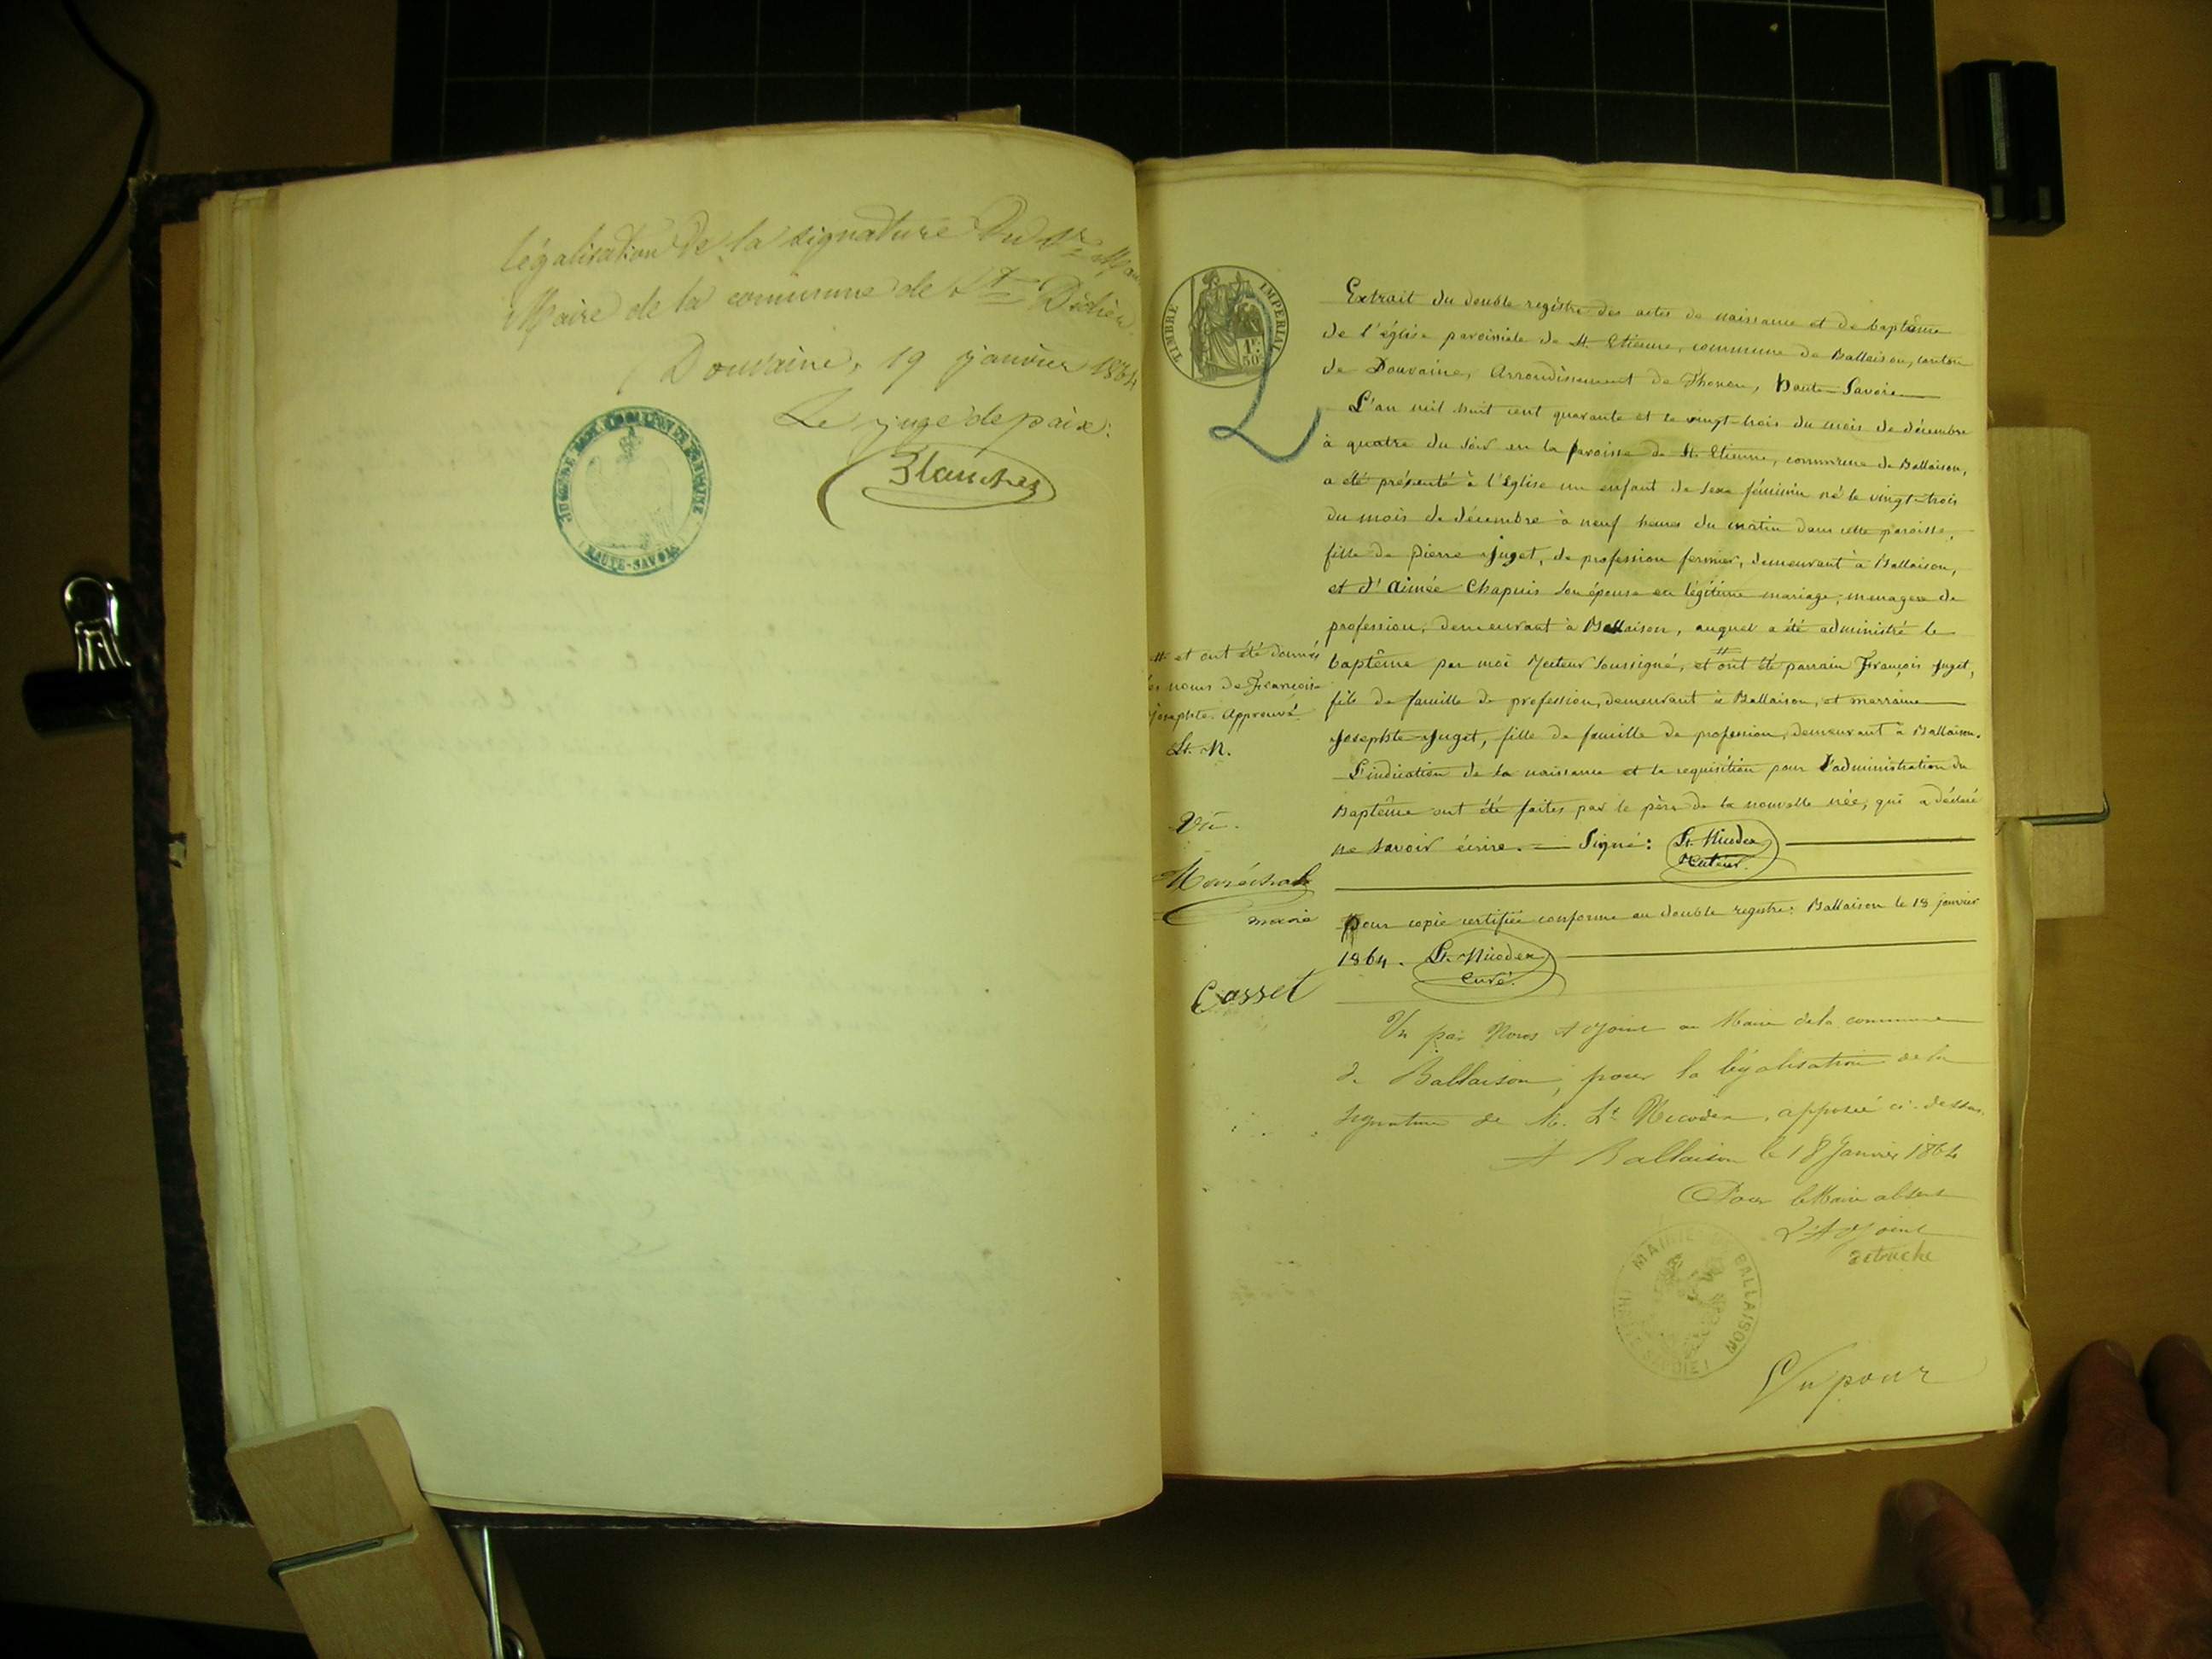 légalisation de la signature du Sr
Maire de la commune de St Didier
Douvaine, 19 janvier 1864
Le juge de paix.
HAUTE-SAVOIE
TIMBRE IMPÉRIAL
1F 50C
Extrait du double registre des actes de naissance et de baptême
de l'église paroissiale de St. Etienne, commune de Ballaison, canton
de Douvaine, Arrondissement de Thonon, Haute-Savoie
L'an mil huit cent quarante et le vingt-trois du mois de décembre
à quatre du soir en la paroisse de St. Etienne, commune de Ballaison,
a été présenté à l'église un enfant de sexe féminin né le vingt-trois
du mois de décembre à neuf heures du matin dans cette paroisse,
fille de Pierre Juget, de profession fermier, demeurant à Ballaison,
et d'Aimée Chapuis son épouse en légitime mariage, menagere de
profession, demeurant à Ballaison, auquel a été administré le
baptême par moi Recteur soussigné, et # ont été parrain François Juget,
fils de famille de profession, demeurant à Ballaison, et marraine
Josephte Juget, fille de famille de profession, demeurant à Ballaison.
L'indication de la naissance et la requisition pour l'administration du
Baptême ont été faites par le père de la nouvelle née, qui a déclaré
ne savoir écrire. — Signé: St. Nicodex
Recteur.
# et ont été donnés
les noms de Françoise
Josephte. Approuvé.
St. N.
Vu.
Maréchal
maire
Casset
Pour copie certifiée conforme au double registre: Ballaison le 18 janvier
1864. St. Nicodex
Curé.
Vu par Nous Adjoint au Maire de la commune
de Ballaison, pour la légalisation de la
signature de M. St Nicodex, apposée ci-dessus.
A Ballaison le 18 Janvier 1864
Pour le Maire absent
L'Adjoint
Detruche
MAIRIE DE BALLAISON
Vu pour